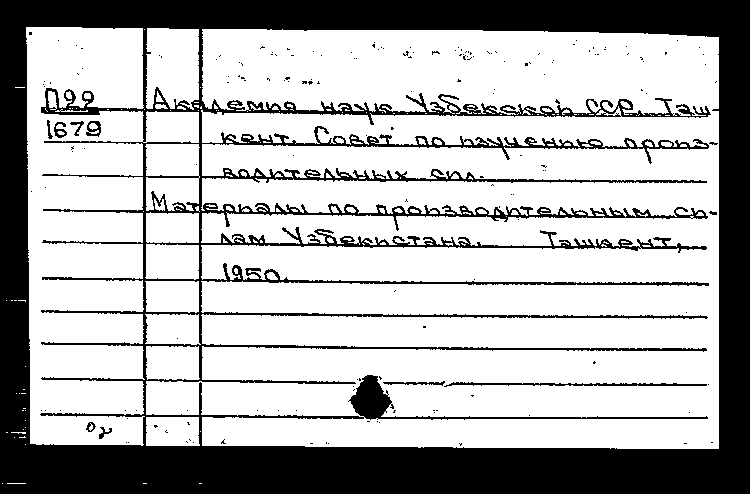 П22 Академия наук Узбекской ССР. Таш-
1679 кент. Совет по изучению произ-
водительных сил.
Материалы по производительным си-
лам Узбекистана. Ташкент,
1950.